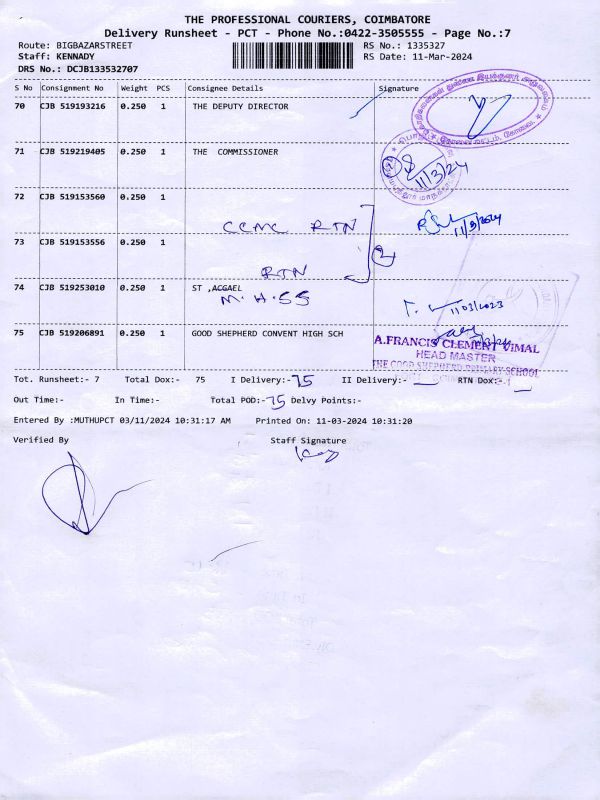 THE PROFESSIONAL COURIERS, COIMBATORE
Delivery Runsheet - PCT - Phone No.:0422-3505555 - Page No.:7
Route: BIGBAZARSTREET RS No.: 1335327
Staff: KENNADY RS Date: 11-Mar-2024
DRS No.: DCJB133532707
S No Consignment No Weight PCS Consignee Details Signature
70 CJB 519193216 0.250 1 THE DEPUTY DIRECTOR
71 CJB 519219405 0.250 1 THE COMMISSIONER
11/3/24
72 CJB 519153560 0.250 1
CCMC RTN
11/3/2024
73 CJB 519153556 0.250 1
2
RTN
74 CJB 519253010 0.250 1 ST ,ACGAEL
M.H.SS
11/03/2023
75 CJB 519206891 0.250 1 GOOD SHEPHERD CONVENT HIGH SCH
A.FRANCIS CLEMENT VIMAL
HEAD MASTER
THE GOOD SHEPHERD PRIMARY SCHOOL
Tot. Runsheet:- 7 Total Dox:- 75 I Delivery:- 75 II Delivery:- RTN Dox:-
Out Time:- In Time:- Total POD:- 75 Delvy Points:-
Entered By :MUTHUPCT 03/11/2024 10:31:17 AM Printed On: 11-03-2024 10:31:20
Verified By Staff Signature